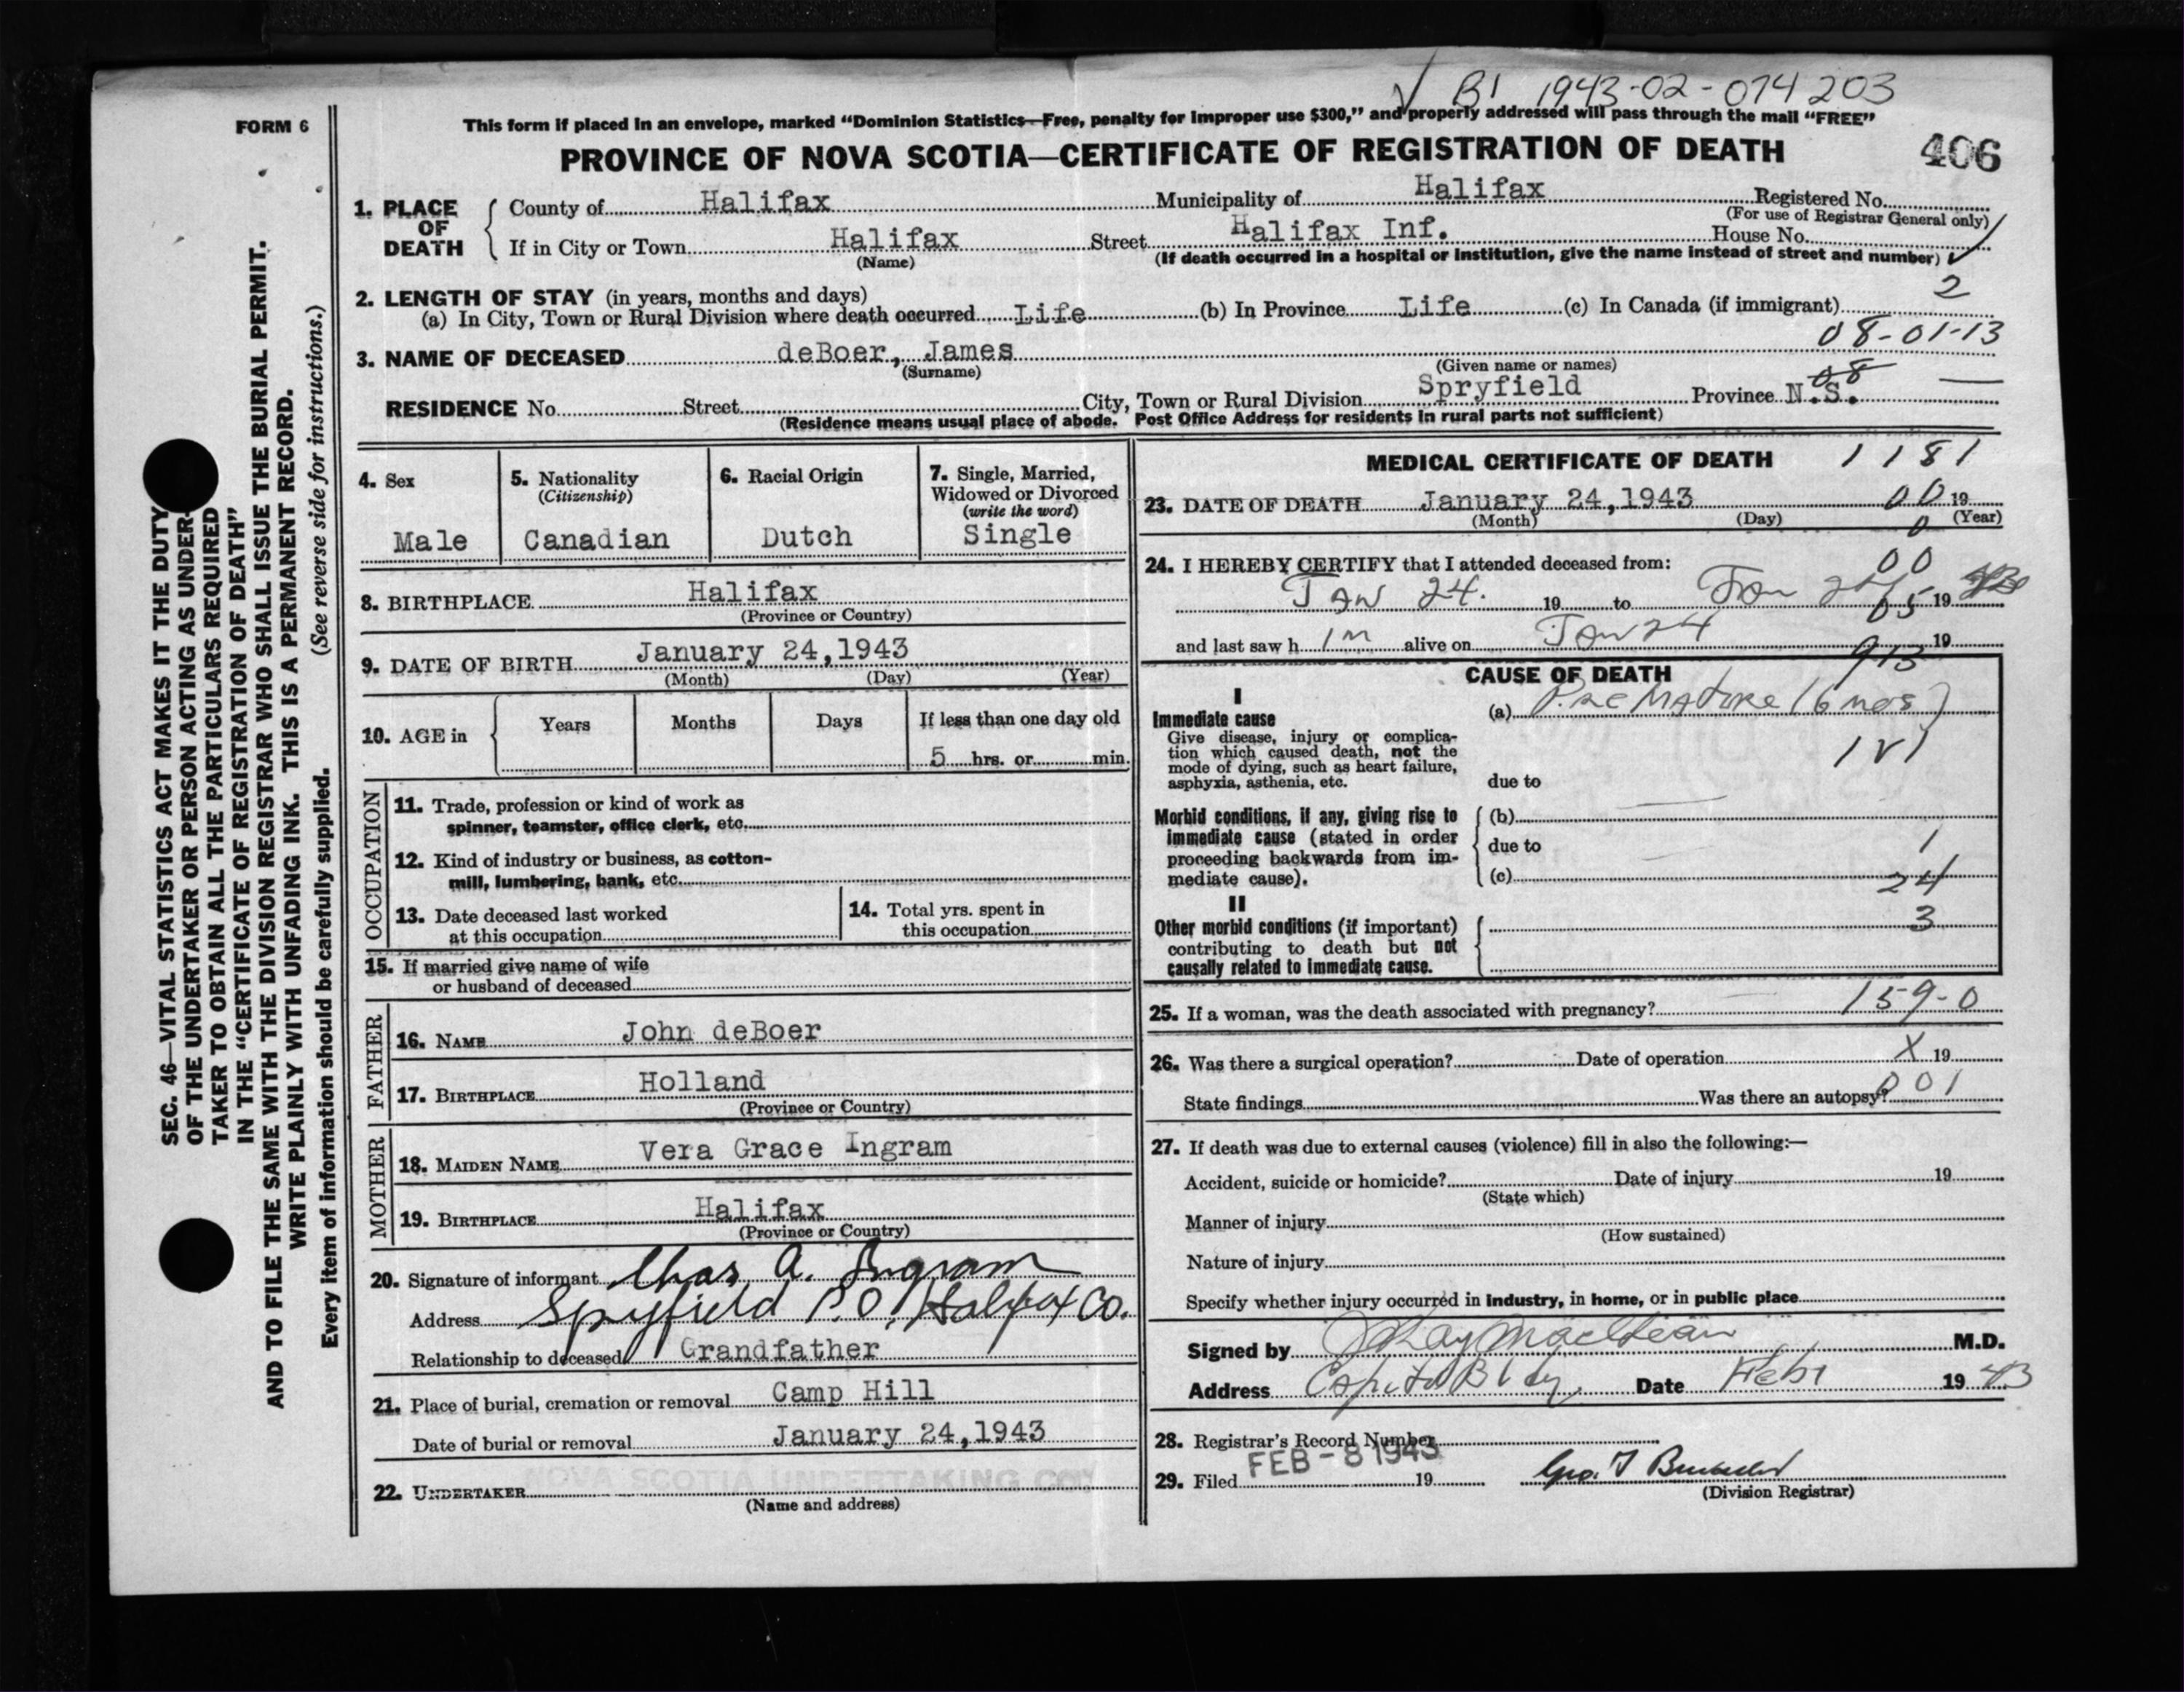 ✓ B1 1943-02-074203
FORM 6
This form if placed in an envelope, marked “Dominion Statistics—Free, penalty for improper use $300,” and properly addressed will pass through the mail “FREE”
PROVINCE OF NOVA SCOTIA—CERTIFICATE OF REGISTRATION OF DEATH 406
SEC. 46—VITAL STATISTICS ACT MAKES IT THE DUTY
OF THE UNDERTAKER OR PERSON ACTING AS UNDER-
TAKER TO OBTAIN ALL THE PARTICULARS REQUIRED
IN THE “CERTIFICATE OF REGISTRATION OF DEATH”
AND TO FILE THE SAME WITH THE DIVISION REGISTRAR WHO SHALL ISSUE THE BURIAL PERMIT.
WRITE PLAINLY WITH UNFADING INK. THIS IS A PERMANENT RECORD.
Every item of information should be carefully supplied. (See reverse side for instructions.)
1. PLACE OF DEATH
County of Halifax Municipality of Halifax Registered No.
(For use of Registrar General only)
If in City or Town Halifax Street Halifax Inf. House No.
(Name) (If death occurred in a hospital or institution, give the name instead of street and number) ✓
2. LENGTH OF STAY (in years, months and days) 2
(a) In City, Town or Rural Division where death occurred Life (b) In Province Life (c) In Canada (if immigrant)
08-01-13
3. NAME OF DECEASED deBoer, James
(Surname) (Given name or names)
08 —
RESIDENCE No. Street City, Town or Rural Division Spryfield Province N.S.
(Residence means usual place of abode. Post Office Address for residents in rural parts not sufficient)
4. Sex
Male
5. Nationality
(Citizenship)
Canadian
6. Racial Origin
Dutch
7. Single, Married,
Widowed or Divorced
(write the word)
Single
8. BIRTHPLACE Halifax
(Province or Country)
9. DATE OF BIRTH January 24,1943
(Month) (Day) (Year)
10. AGE in Years Months Days If less than one day old
5 hrs. or min.
OCCUPATION
11. Trade, profession or kind of work as
spinner, teamster, office clerk, etc.
12. Kind of industry or business, as cotton-
mill, lumbering, bank, etc.
13. Date deceased last worked
at this occupation
14. Total yrs. spent in
this occupation
15. If married give name of wife
or husband of deceased
FATHER
16. NAME John deBoer
17. BIRTHPLACE Holland
(Province or Country)
MOTHER
18. MAIDEN NAME Vera Grace Ingram
19. BIRTHPLACE Halifax
(Province or Country)
20. Signature of informant Chas. A. Ingram
Address Spryfield P.O. Halifax Co.
Relationship to deceased Grandfather
21. Place of burial, cremation or removal Camp Hill
Date of burial or removal January 24,1943
NOVA SCOTIA UNDERTAKING COY
22. UNDERTAKER
(Name and address)
MEDICAL CERTIFICATE OF DEATH 1181
23. DATE OF DEATH January 24,1943 00 19
(Month) (Day) (Year)
0
24. I HEREBY CERTIFY that I attended deceased from: 00
Jan 24. 19 to Jan 24 05 19
and last saw h im alive on Jan 24 19
913
CAUSE OF DEATH
I
Immediate cause
Give disease, injury or complica-
tion which caused death, not the
mode of dying, such as heart failure,
asphyxia, asthenia, etc.
(a) Premature (6 mos)
due to
Morbid conditions, if any, giving rise to
immediate cause (stated in order
proceeding backwards from im-
mediate cause).
(b)
due to 1
(c) 24
II
Other morbid conditions (if important)
contributing to death but not
causally related to immediate cause.
3
25. If a woman, was the death associated with pregnancy? 159-0
26. Was there a surgical operation? Date of operation X 19
State findings Was there an autopsy? 001
27. If death was due to external causes (violence) fill in also the following:—
Accident, suicide or homicide? Date of injury 19
(State which)
Manner of injury
(How sustained)
Nature of injury
Specify whether injury occurred in industry, in home, or in public place
Signed by M.D.
Address Capitol Bldg. Date Feb 1 1943
28. Registrar's Record Number
FEB - 8 1943
29. Filed 19
(Division Registrar)